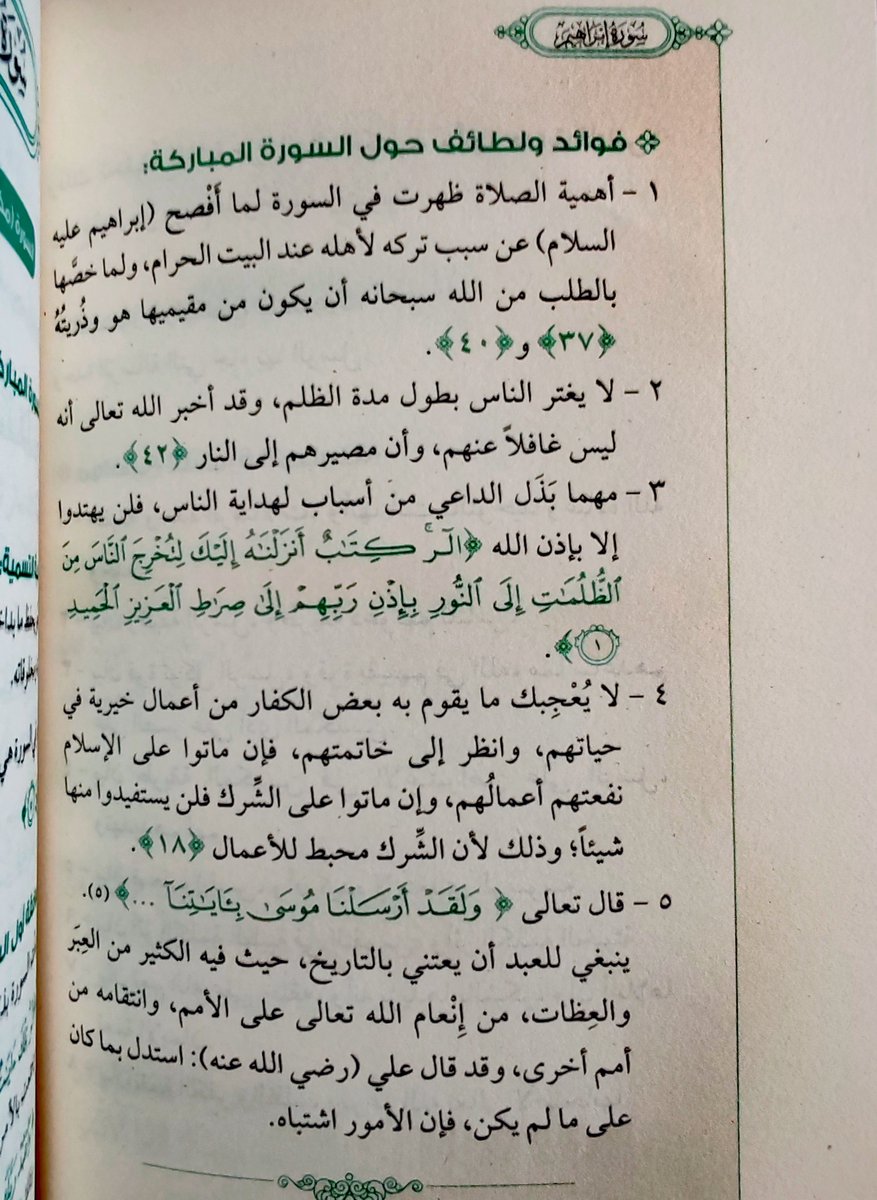 سورة إبراهيم
فوائد ولطائف حول السورة المباركة:
١ - أهمية الصلاة ظهرت في السورة لما أَفْصح (إبراهيم عليه
السلام) عن سبب تركه لأهله عند البيت الحرام، ولما خصَّها
بالطلب من الله سبحانه أن يكون من مقيميها هو وذُريتُهُ
﴿٣٧﴾ و﴿٤٠﴾.
٢ - لا يغتر الناس بطول مدة الظلم، وقد أخبر الله تعالى أنه
ليس غافلاً عنهم، وأن مصيرهم إلى النار ﴿٤٢﴾.
٣ - مهما بَذَل الداعي من أسباب لهداية الناس، فلن يهتدوا
إلا بإذن الله ﴿الٓرۚ كِتَٰبٌ أَنزَلْنَٰهُ إِلَيْكَ لِتُخْرِجَ ٱلنَّاسَ مِنَ
ٱلظُّلُمَٰتِ إِلَى ٱلنُّورِ بِإِذْنِ رَبِّهِمْ إِلَىٰ صِرَٰطِ ٱلْعَزِيزِ ٱلْحَمِيدِ
١﴾.
٤ - لا يُعْجِبك ما يقوم به بعض الكفار من أعمال خيرية في
حياتهم، وانظر إلى خاتمتهم، فإن ماتوا على الإسلام
نفعتهم أعمالُهم، وإن ماتوا على الشِّرك فلن يستفيدوا منها
شيئاً؛ وذلك لأن الشِّرك محبط للأعمال ﴿١٨﴾.
٥ - قال تعالى ﴿وَلَقَدْ أَرْسَلْنَا مُوسَىٰ بِـَٔايَٰتِنَآ ...﴾ (٥).
ينبغي للعبد أن يعتني بالتاريخ، حيث فيه الكثير من العِبَر
والعِظات، من إِنْعام الله تعالى على الأمم، وانتقامه من
أمم أخرى، وقد قال علي (رضي الله عنه): استدل بما كان
على ما لم يكن، فإن الأمور اشتباه.